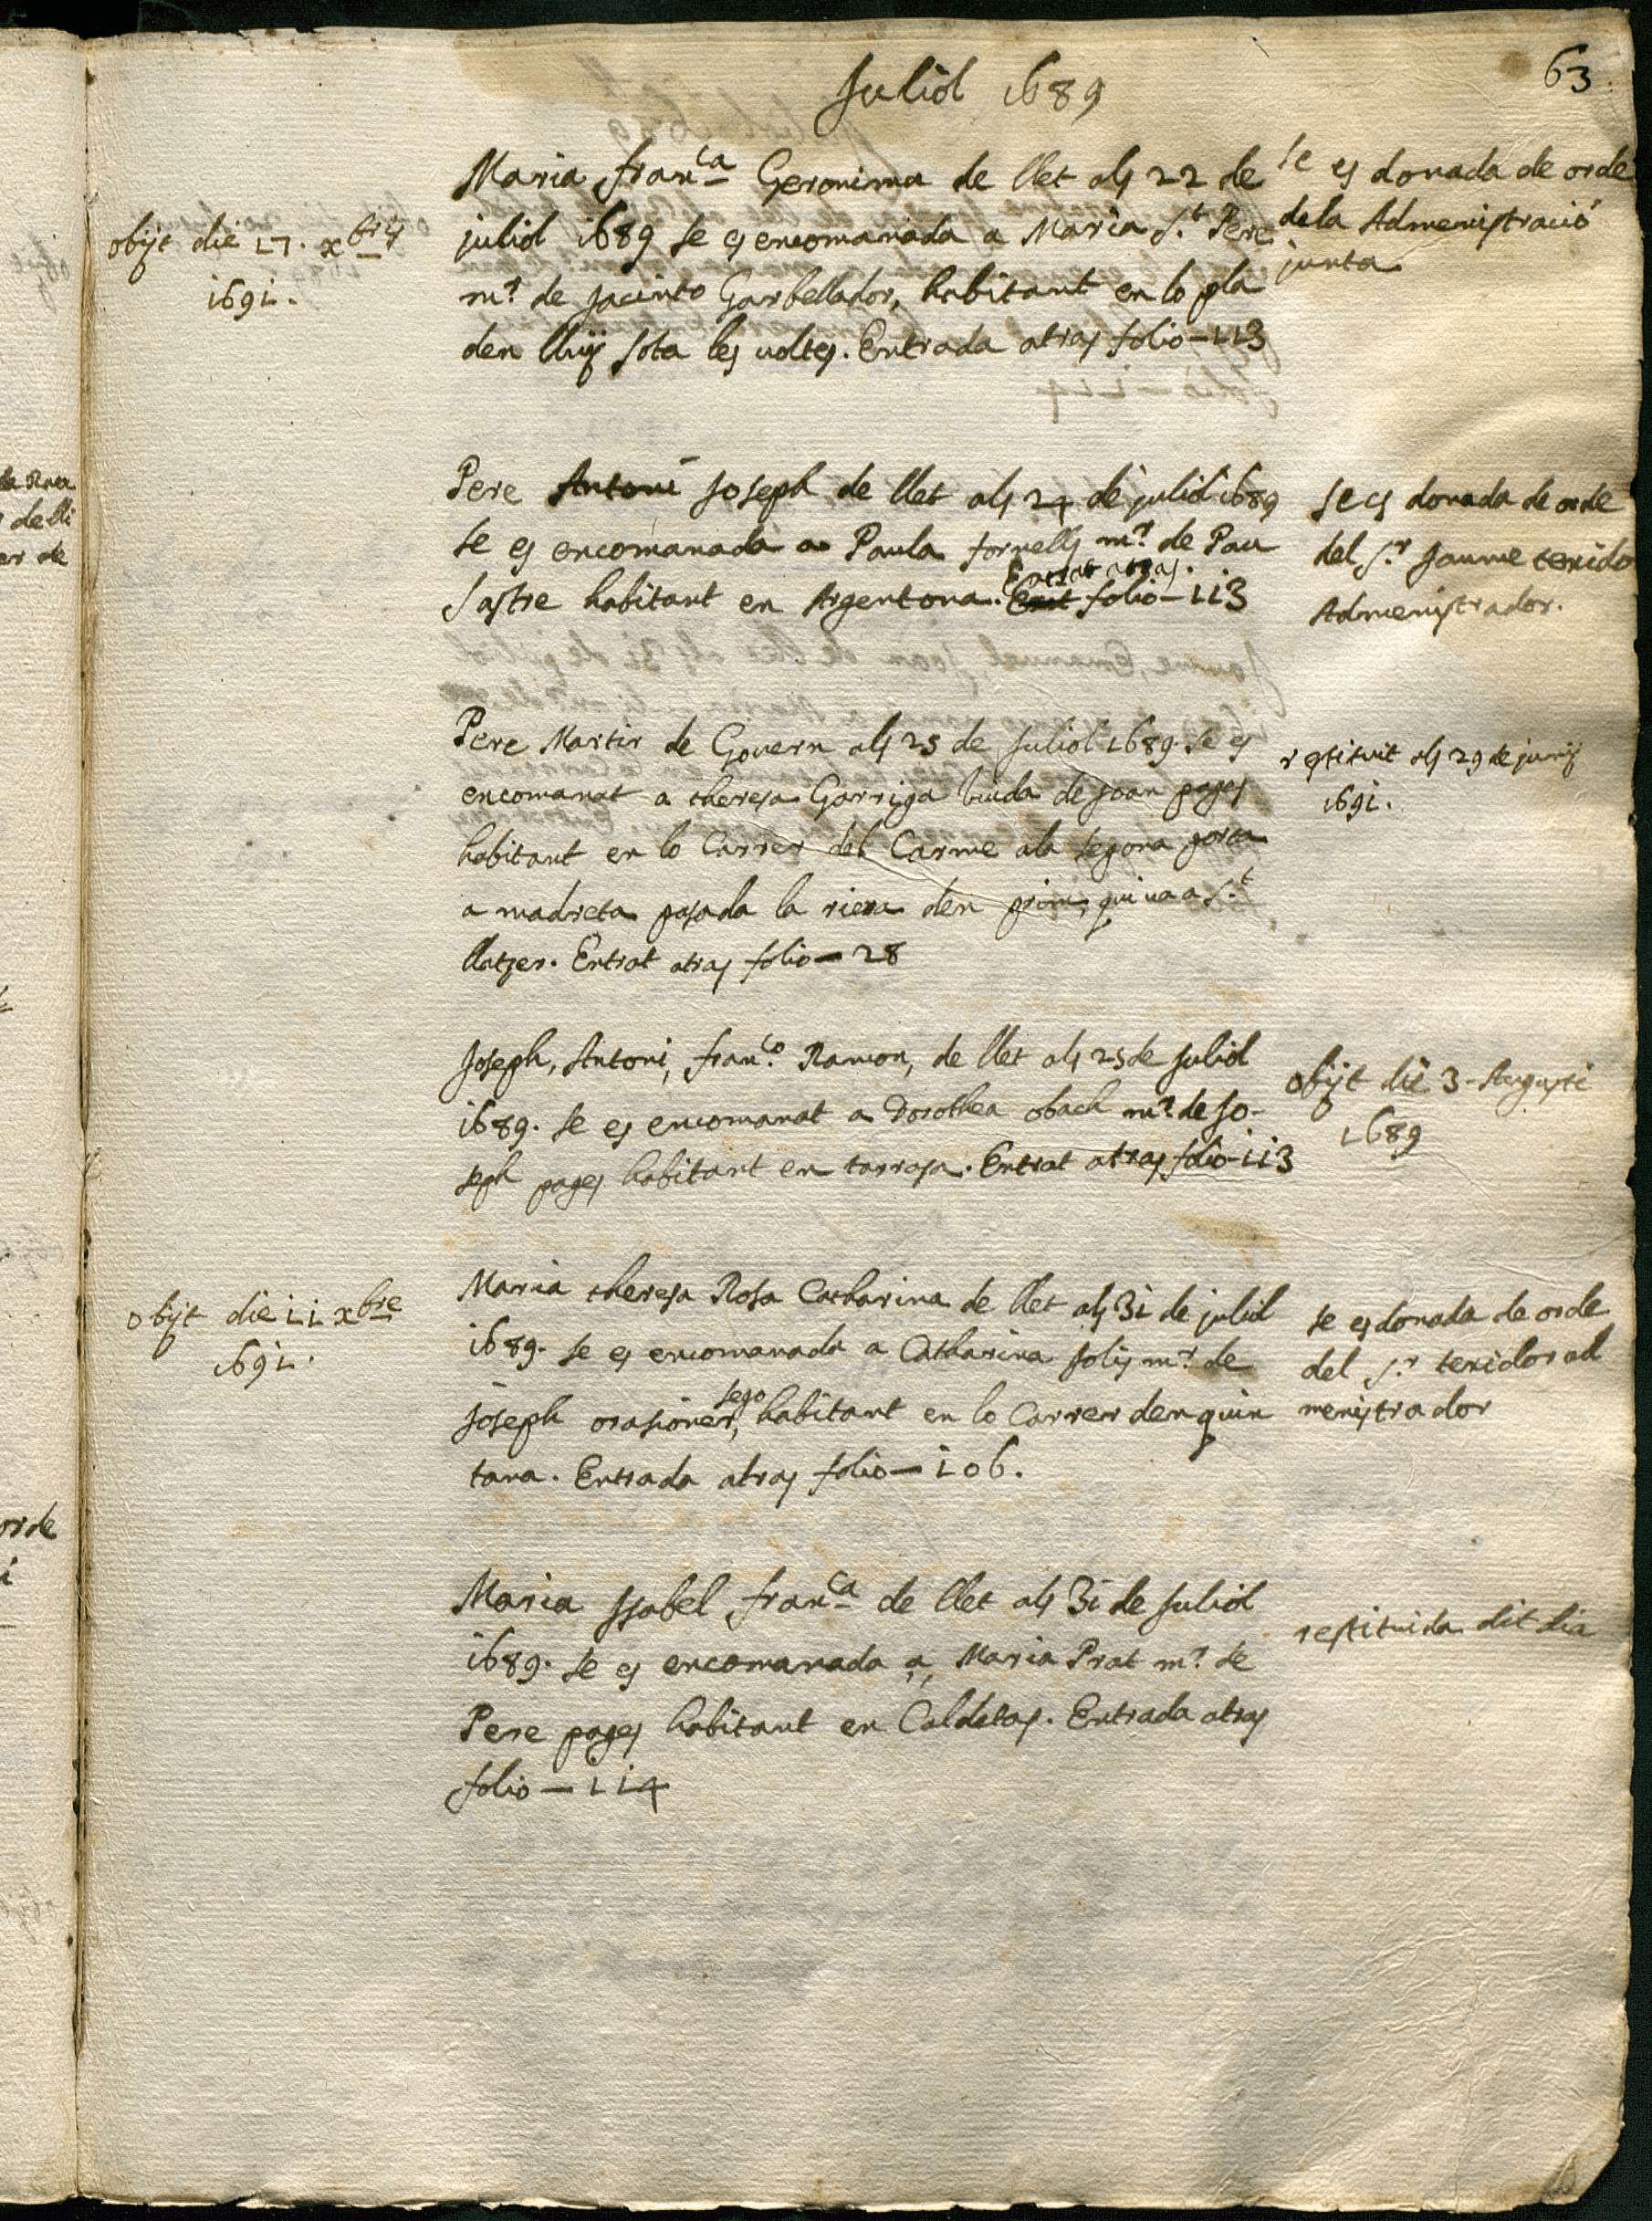 63
Juliol 1689
Maria fran.ca Geronima de llet als 22 de
juliol 1689 se es encomanada a Maria S.t Pere
m.r de Jacinto Garbellador, habitant en lo pla
den lluy sota les voltes. Entrada atras folio — 113
se es donada de orde
dela Admenistració
junta
obijt die 17. xbris
1691.
Pere Antoni Joseph de llet als 24 de juliol 1689
se es encomanada a Paula fornells m.r de Pau
Sastre habitant en Argentona. Entrat atras. Ent folio — 113
se es donada de orde
del S.r Jaume texido
Admenistrador.
Pere Martir de Govern als 25 de Juliol 1689. se es
encomanat a theresa Garriga viuda de Joan pages
habitant en lo Carrer del Carme ala segona porta
a madreta pasada la riera den prim, qui va a S.t
llatzer. Entrat atras folio — 28
restituit als 29 de juny
1691.
Joseph, Antoni, fran.co Ramon, de llet als 25 de Juliol
1689. se es encomanat a Dorothea obach m.r de Jo-
seph pages habitant en tarrasa. Entrat atras folio 113
obijt die 3 - Augusti
1689
Maria theresa Rosa Catharina de llet als 31 de juliol
1689. se es encomanada a Catharina Solis m.r de
Joseph orasioner, sego habitant en lo Carrer den quin
tana. Entrada atras folio — 106.
se es donada de orde
del S.r texidor ad
menistrador
obijt die 11 xbre
1691.
Maria Isabel fran.ca de llet als 31 de Juliol
1689. se es encomanada a Maria Prat m.r de
Pere pages habitant en Caldetas. Entrada atras
folio — 114
restituida dit dia